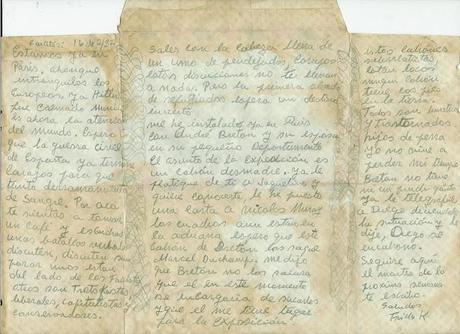 16 de
Estamos ya en
París, ahonque
intranquilos los
Europeos, ya Hitler
que
es ahora la atención
del mundo. Espero
que la guerra civil
de España ya
carajos para que
tanto derramamiento
de Sangre. Por acá
te sientas a tomar
un café y escuchas
unas batallas verbales
discuten, discuten
por unos están
del lado de los
otros son Trotskistas
liberales, capitalistas y
conservadores.
Sales con la cabeza llena de
un limo de pendejadas, carajos
estas discusiones no te llevan
a nada. Para la primera
de refugiados espera un
me he instalado ya en Paris
con André Breton y su esposa
en su pequeño Departamento
El asunto de la Exposición es
un cabrón desmadre. Ya le
platique de ti a Jaquelin y
quiere conocerte, le he puesto
una carta a Nikolas Muray
los cuadros aun estan en
la aduana espero que este
cabron de Breton los saque
Marcel Duchamp me dijo
que Breton no los sacara
que el en este momento
se embargaria de sacarlos
y que el me tiene lugar
para la Exposición.
estos cabrones
surrealistas
estan locos
ningun cabron
tiene los pies
en la tierra.
Todos son lunaticos
y Trastornados
hijos de perra
Yo no vine a
perder mi tiempo
Breton no tiene
ni un quinto
ya le telegrafie
a Diego diciendole
la situacion y le
dije, Diego se
encabrono.
Seguire aqui
el martes de la
proxima semana
te escribo.
Saludos.
Frida K